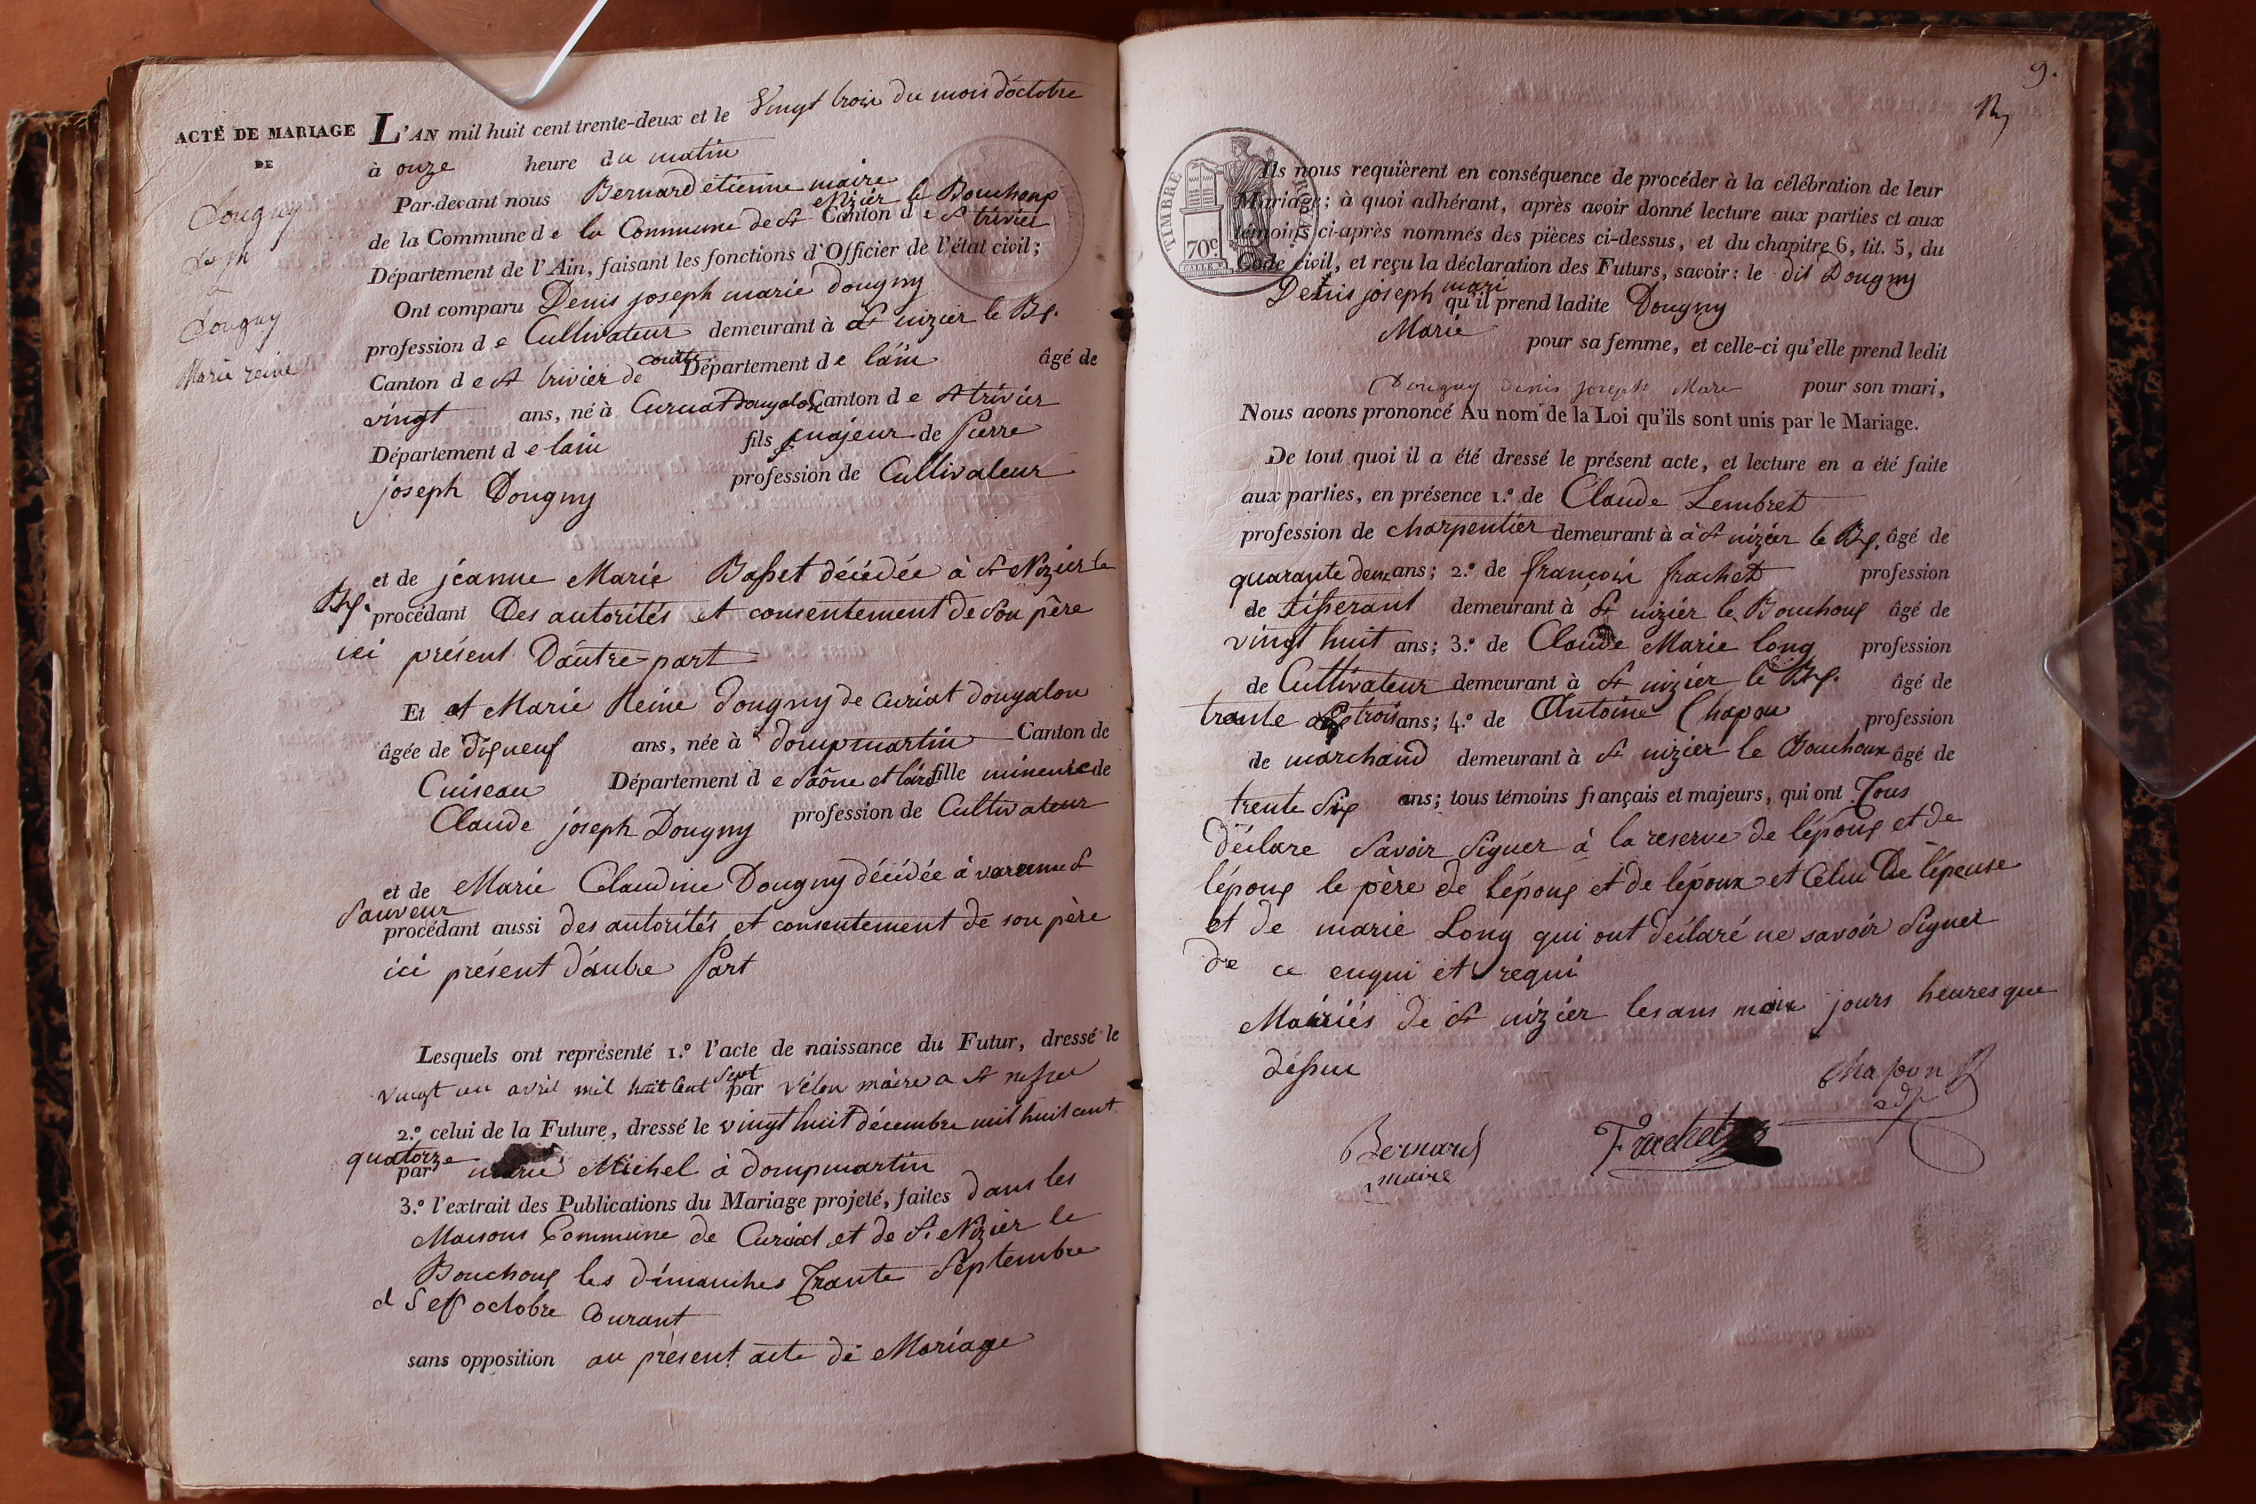 ACTE DE MARIAGE
DE
Dougny
Dougny
Marie reine
L'AN mil huit cent trente-deux et le Vingt trois du mois d'octobre
à onze heure du matin
Par-devant nous Bernard étienne maire
de la Commune de la Commune de St Nizier le Bouchoux Canton de St trivier
Département de l'Ain, faisant les fonctions d'Officier de l'état civil;
Ont comparu Denis joseph marie Dougny
profession de Cultivateur demeurant à St nizier le Bx.
Canton de St trivier de courtes Département de l'ain âgé de
vingt ans, né à Curciat Dongalon Canton de St trivier
Département de l'ain fils majeur de Pierre
joseph Dougny profession de Cultivateur
et de jeanne Marie Basset décédée à St Nizier le
Bx. procédant Des autorités et consentement de son père
ici présent D'autre part
Et et Marie Reine Dougny de curiat dongalon
âgée de dixneuf ans, née à dompmartin Canton de
Cuiseau Département de Saône et loire fille mineure de
Claude joseph Dougny profession de Cultivateur
et de Marie Claudine Dougny décédée à varenne St
Sauveur
procédant aussi des autorités et consentement de son père
ici présent d'autre Part
Lesquels ont représenté 1.º l'acte de naissance du Futur, dressé le
vingt un avril mil huit cent Sept par Vélon maire a St nizier
2.º celui de la Future, dressé le vingt huit décembre mil huit cent
quatorze
par marie Michel à Dompmartin
3.º l'extrait des Publications du Mariage projeté, faites dans les
Maisons Commune de Curciat et de St Nizier le
Bouchoux les dimanches Trante Septembre
et Sept octobre Courant
sans opposition au présent acte de Mariage
9.
TIMBRE ROYAL
70c.
Ils nous requièrent en conséquence de procéder à la célébration de leur
Mariage; à quoi adhérant, après avoir donné lecture aux parties et aux
témoins ci-après nommés des pièces ci-dessus, et du chapitre 6, tit. 5, du
Code civil, et reçu la déclaration des Futurs, savoir: le dit Dougny
Denis joseph mari qu'il prend ladite Dougny
Marie pour sa femme, et celle-ci qu'elle prend ledit
Dougny Denis joseph Mare pour son mari,
Nous avons prononcé Au nom de la Loi qu'ils sont unis par le Mariage.
De tout quoi il a été dressé le présent acte, et lecture en a été faite
aux parties, en présence 1.º de Claude Lembret
profession de charpentier demeurant à à St nizier le Bx. âgé de
quarante deux ans; 2.º de françois frachet profession
de tisserant demeurant à St nizier le Bouchoux âgé de
vingt huit ans; 3.º de Claude Marie long profession
de Cultivateur demeurant à St nizier le Bx. âgé de
trante trois ans; 4.º de Antoine Chapon profession
de marchand demeurant à St nizier le Bouchoux âgé de
trente Six ans; tous témoins français et majeurs, qui ont Tous
déclare Savoir Signer à la reserve de l'époux et de
l'époux le père de l'époux et de l'époux et Celui De l'épouse
et de marie Long qui ont déclaré ne savoir Signer
de ce enqui et requi
Mairiés de St nizier les ans mois jours heures que
déssus
Chapon
adjt
Bernard
maire
Frachet